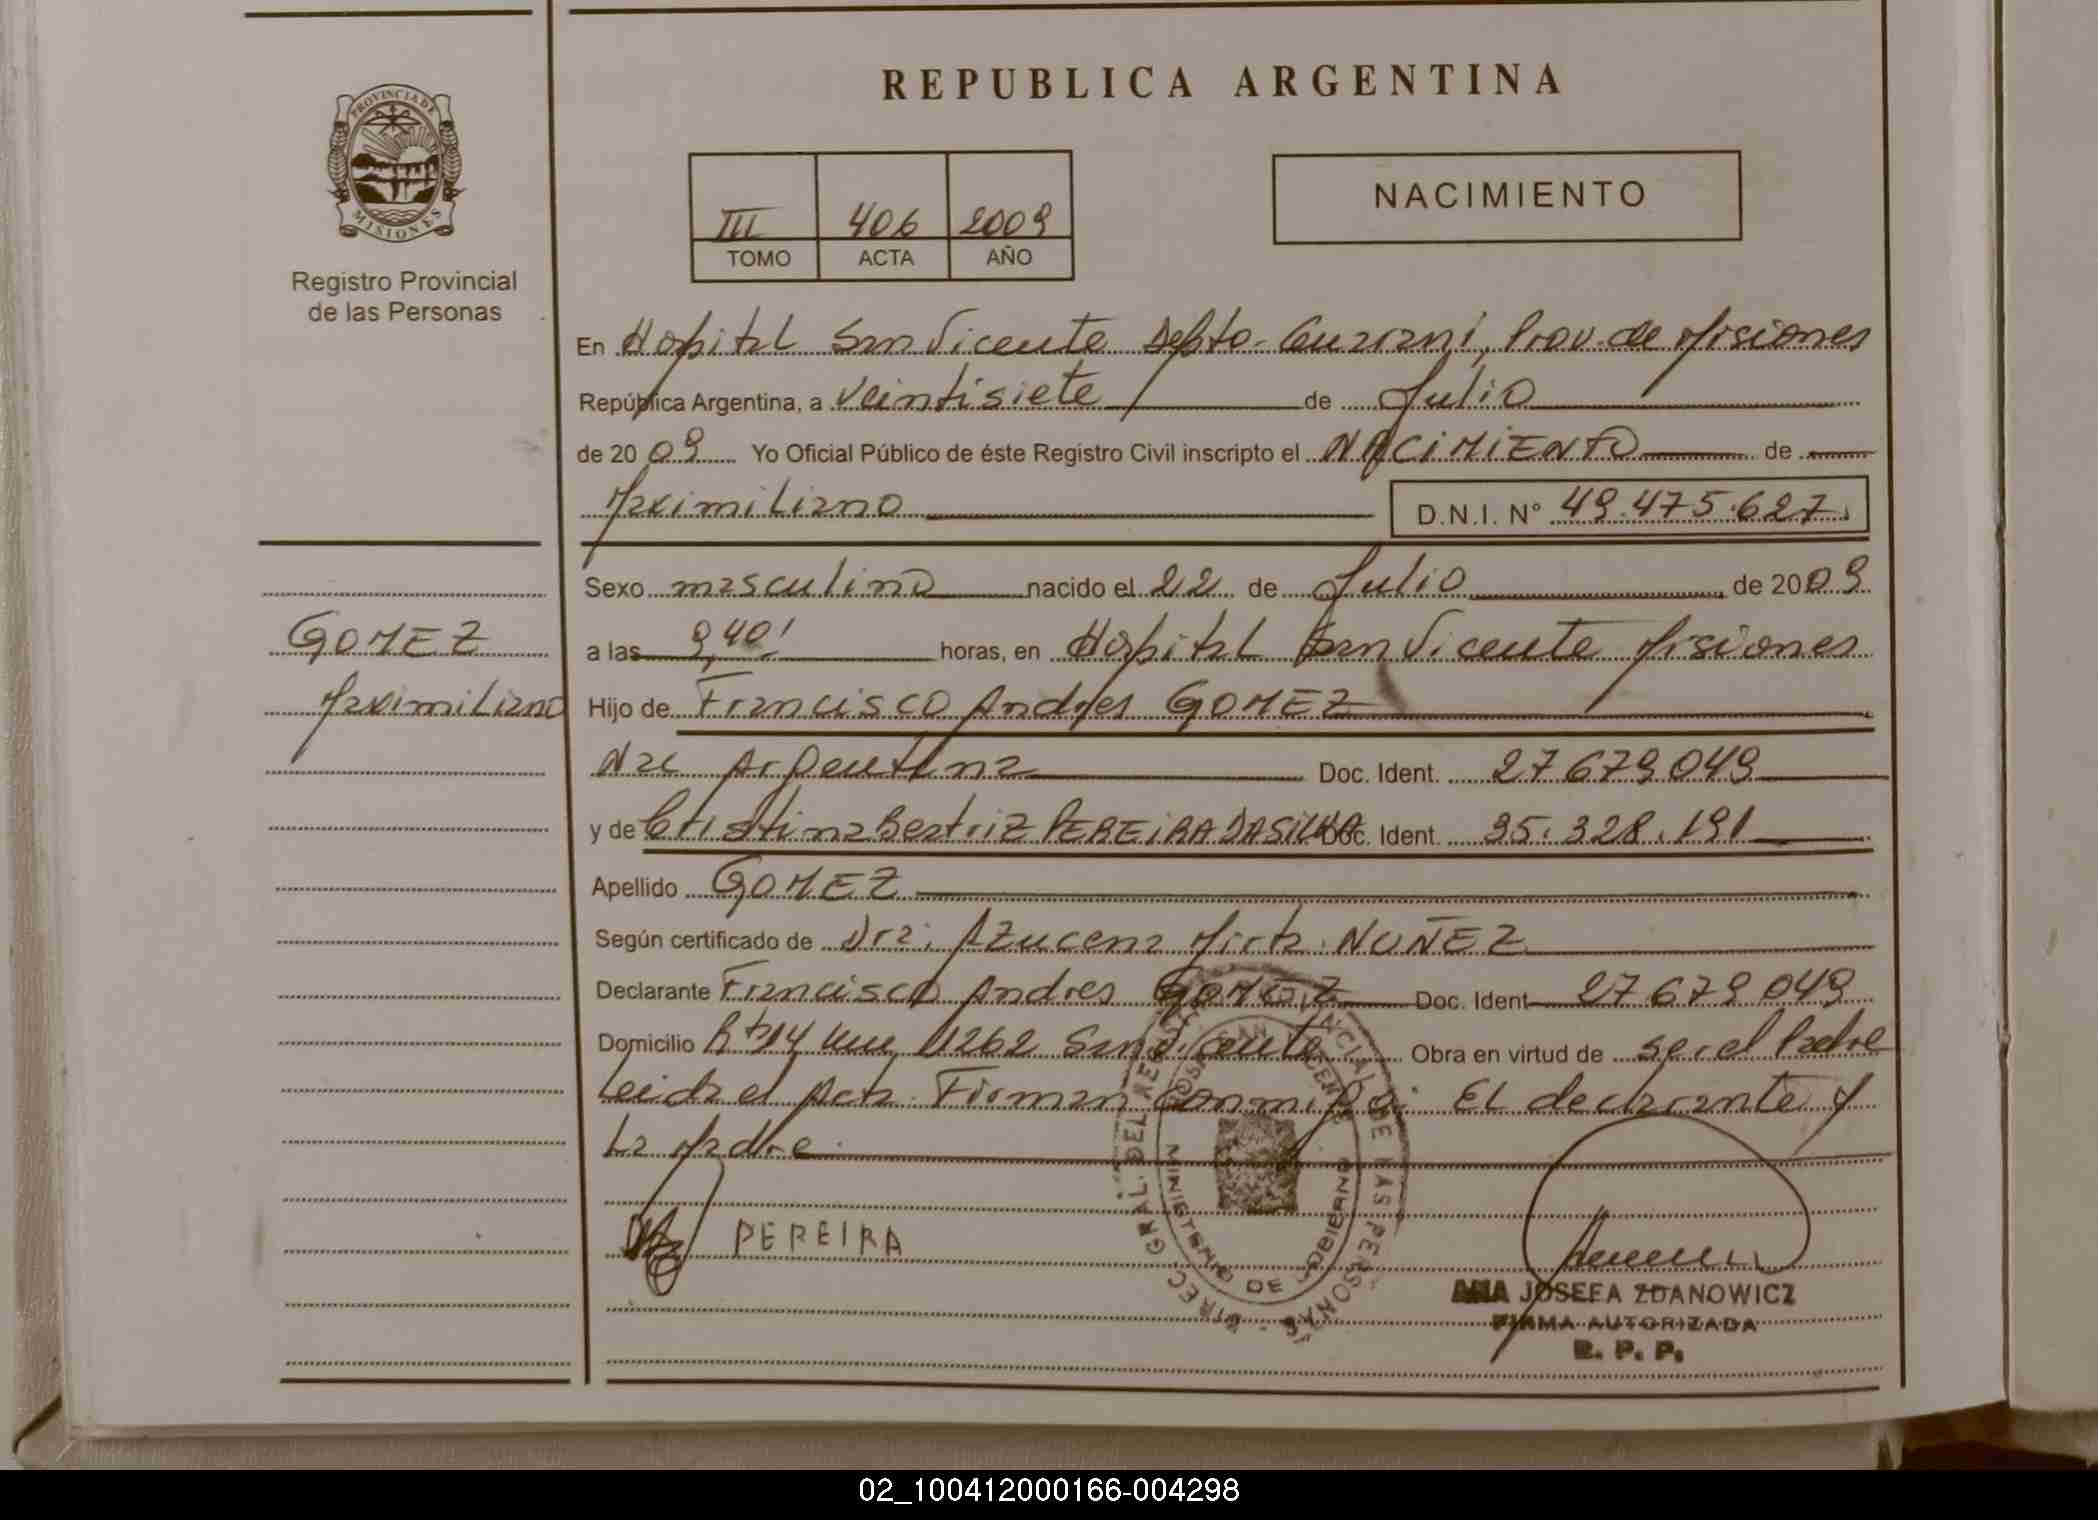 REPUBLICA ARGENTINA
PROVINCIA DE
MISIONES
Registro Provincial
de las Personas
III 406 2009
TOMO ACTA AÑO
NACIMIENTO
En Hospital San Vicente Depto. Guarani, Prov. de Misiones
República Argentina, a veintisiete de Julio
de 2009 Yo Oficial Público de éste Registro Civil inscripto el NACIMIENTO de
Maximiliano D.N.I. N° 49.475.627.
Sexo masculino nacido el 22 de Julio de 2009
GOMEZ
Maximiliano
a las 9,40' horas, en Hospital San Vicente Misiones
Hijo de Francisco Andres GOMEZ
Nac Argentina Doc. Ident. 27679049
y de Cristina Beatriz PEREIRA DA SILVA Doc. Ident. 35.328.191
Apellido GOMEZ
Según certificado de Dra. Azucena Mirta NUÑEZ
Declarante Francisco Andres GOMEZ Doc. Ident 27679049
Domicilio Rta 14 km 1262 San Vicente Obra en virtud de ser el Padre
Leida el Acta Firman Conmigo: El declarante y
La Madre.
PEREIRA
DIREC. GRAL. DEL REGISTRO PROVINCIAL DE LAS PERSONAS
HOSP. SAN VICENTE
MINISTERIO DE GOBIERNO
ANA JOSEFA ZDANOWICZ
FIRMA AUTORIZADA
R. P. P.
02_100412000166-004298